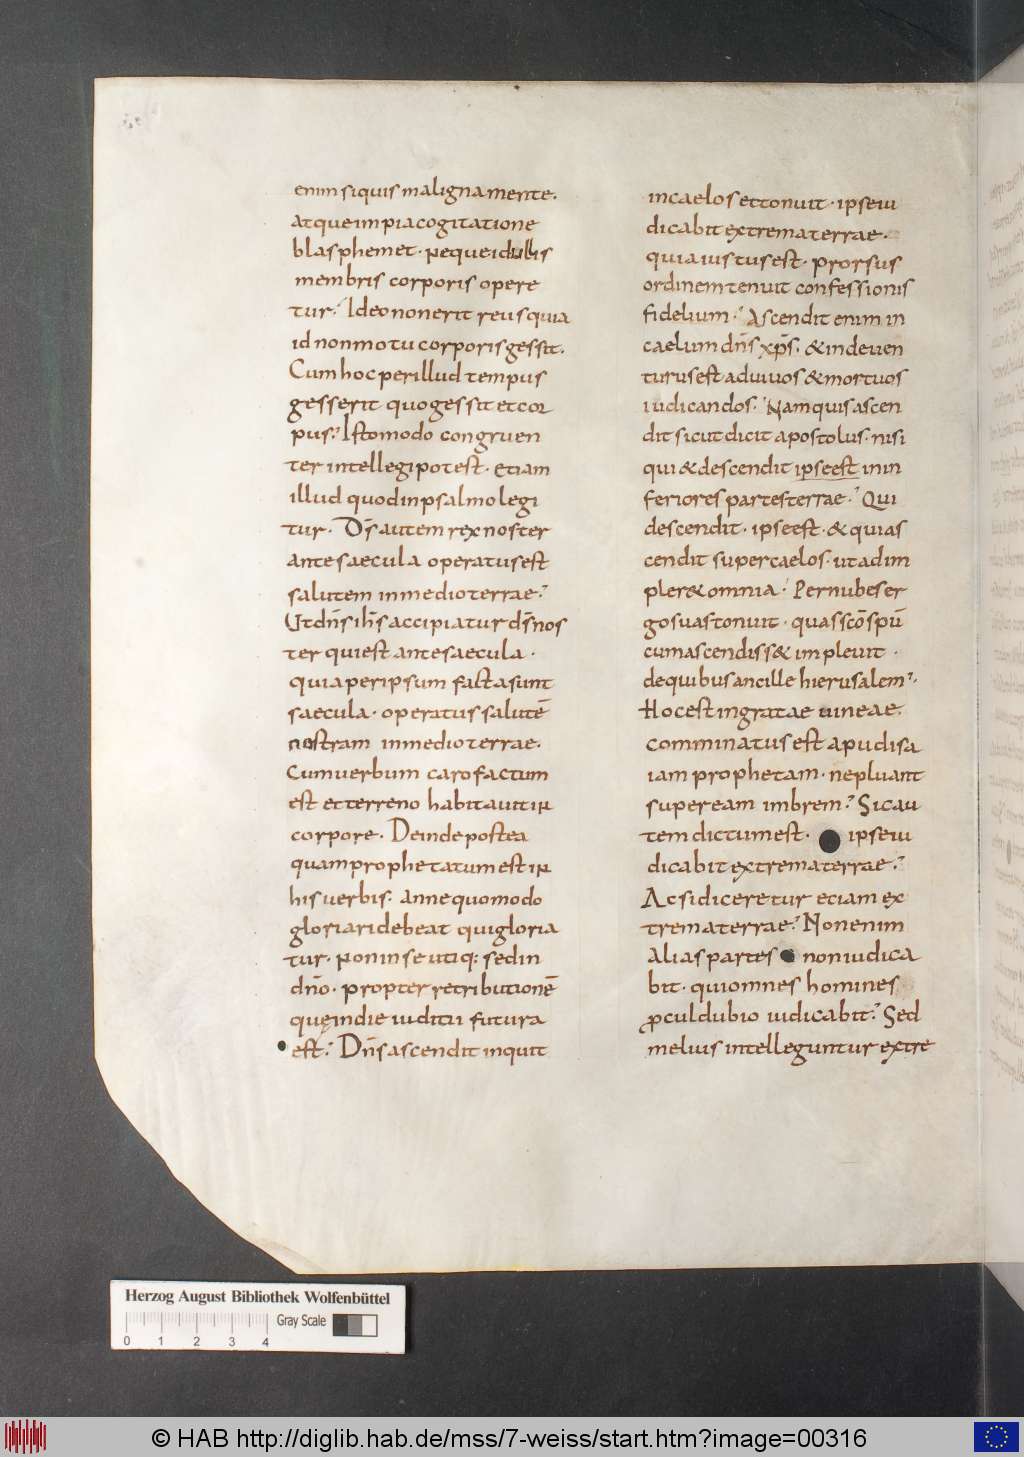 enim siquis maligna mente.
atque impia cogitatione
blasphemet. neque id ullis
membris corporis opere
tur. Ideo non erit reus quia
id non motu corporis gessit.
Cum hoc per illud tempus
gesserit quo gessit et cor
pus. Isto modo congruen
ter intellegi potest. etiam
illud quod in psalmo legi
tur. D̄s autem rex noster
ante saecula operatus est
salutem in medio terrae.
Ut dn̄s ih̄s accipiatur d̄s nos
ter qui est ante saecula.
quia per ipsum facta sunt
saecula. operatus salutē
nostram in medio terrae.
Cum verbum caro factum
est et terreno habitavit in
corpore. Deinde postea
quam prophetatum est in
his verbis. anne quomodo
gloriari debeat qui gloria
tur. non in se utiq: sed in
dn̄o. propter retributionē
quę in die iuditii futura
est. Dn̄s ascendit inquit
in caelos et tonuit. ipse iu
dicabit extrema terrae.
quia iustus est. prorsus
ordinem tenuit confessionis
fidelium. Ascendit enim in
caelum dn̄s xp̄s. & inde uen
turus est ad uiuos & mortuos
iudicandos. Nam quis ascen
dit sicut dicit apostolus. nisi
qui & descendit ipse est in in
feriores partes terrae. Qui
descendit. ipse est. & qui as
cendit super caelos. ut adim
pler& omnia. Per nubes er
go suas tonuit. quas sc̄o sp̄u
cum ascendiss& impleuit.
de quibus ancille hierusalem.
Hoc est ingratae uineae.
comminatus est apud isa
iam prophetam. ne pluant
super eam imbrem. Sic au
tem dictum est. ipse iu
dicabit extrema terrae.
Ac si diceretur etiam ex
trema terrae. Non enim
alias partes non iudica
bit. qui omnes homines
ꝓcul dubio iudicabit. Sed
melius intelleguntur extre
Herzog August Bibliothek Wolfenbüttel
Gray Scale
0 1 2 3 4
© HAB http://diglib.hab.de/mss/7-weiss/start.htm?image=00316